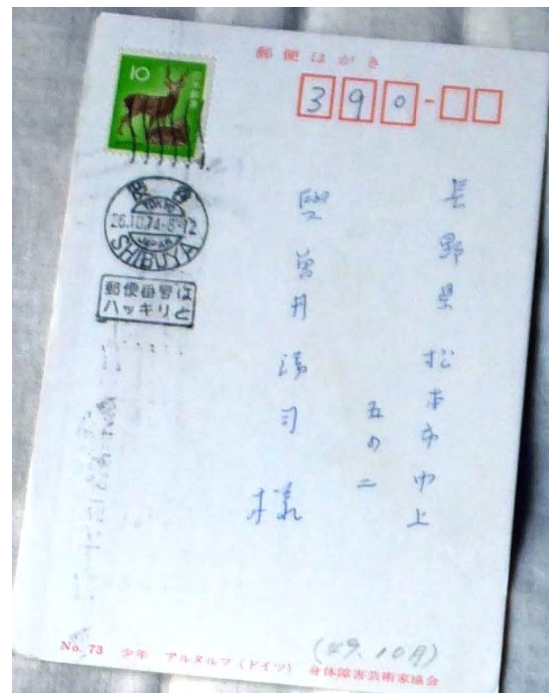 郵便はがき
10
390-
渋谷
TOKYO
26.10.74-8-12
JAPAN
SHIBUYA
郵便番号は
ハッキリと
長野県松本市中上
五の二
様
(49.10月)
No. 73 少年 アルヌルフ(ドイツ) 身体障害芸術家協会